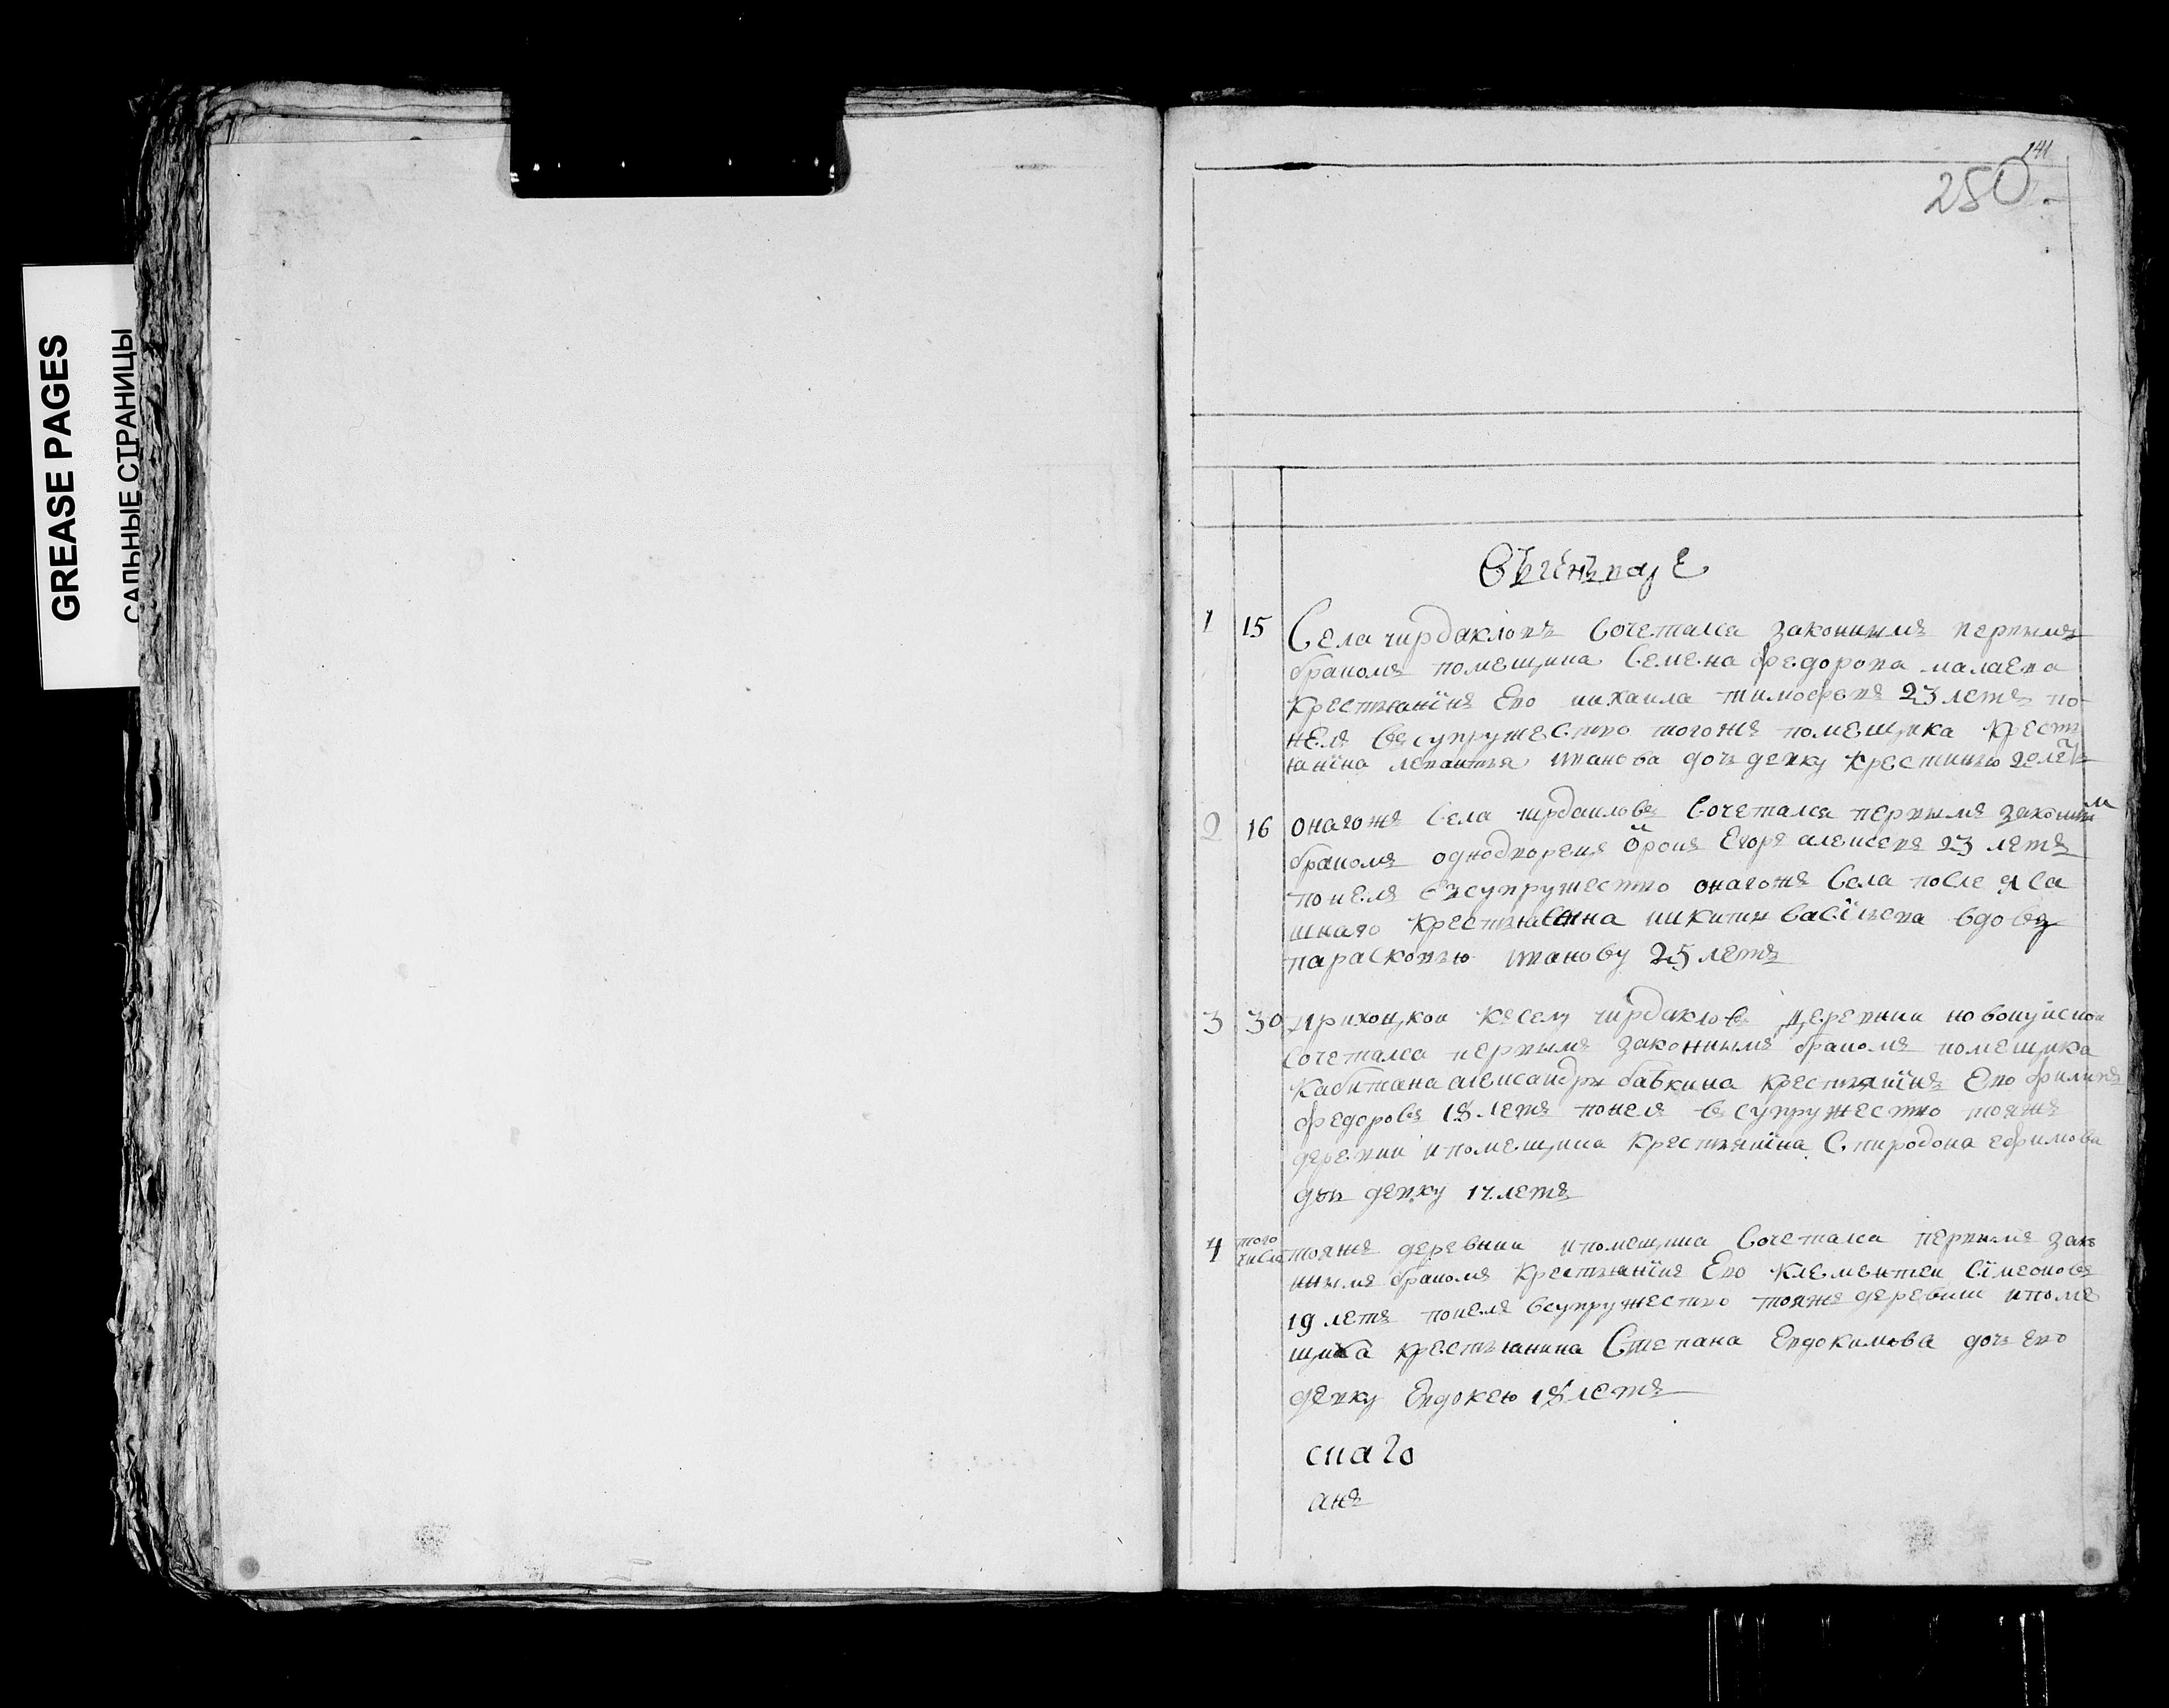 GREASE PAGES
САЛЬНЫЕ СТРАНИЦЫ
141
280
Въ генъваре
1 15 Села чирдакловъ сочетался законнымъ первымъ
бракомъ помещика Семена федорова малаева
крестьянїнъ Ево михаила тимофевъ 23 летъ по-
нелъ въ супружество тогожъ помещика крестъ
янїна иванова дочь девку 20 летъ
2 16 онагожъ села чирдакловъ сочетался первымъ законны м
бракомъ однодворецъ Егоръ алексевъ 23 летъ
понелъ въ супружество онагожъ села после
шнаго крестьянина никиты васїльева вдову
парасковью иванову 25 летъ
3 30 Прихоцкои къ селу чирдакловъ деревни новокуиской
сочетался первымъ законнымъ бракомъ помещика
кабитана александры бабкина крестьянїнъ Ево филипъ
федоровъ 18 летъ понелъ въ супружество тояжъ
деревни и помещика крестьянїна Спиродона ефимова
дочь девку 17 летъ
4 того числа тояжъ деревни и помещика сочетался первымъ зако
ннымъ бракомъ крестьянїнъ Ево клементеи сїмеоновъ
19 летъ понелъ в супружество тояжъ деревни и поме
щика крестьянина Степана Евдокимова дочь ево
девку Евдокею 18 летъ
скаго
анъ